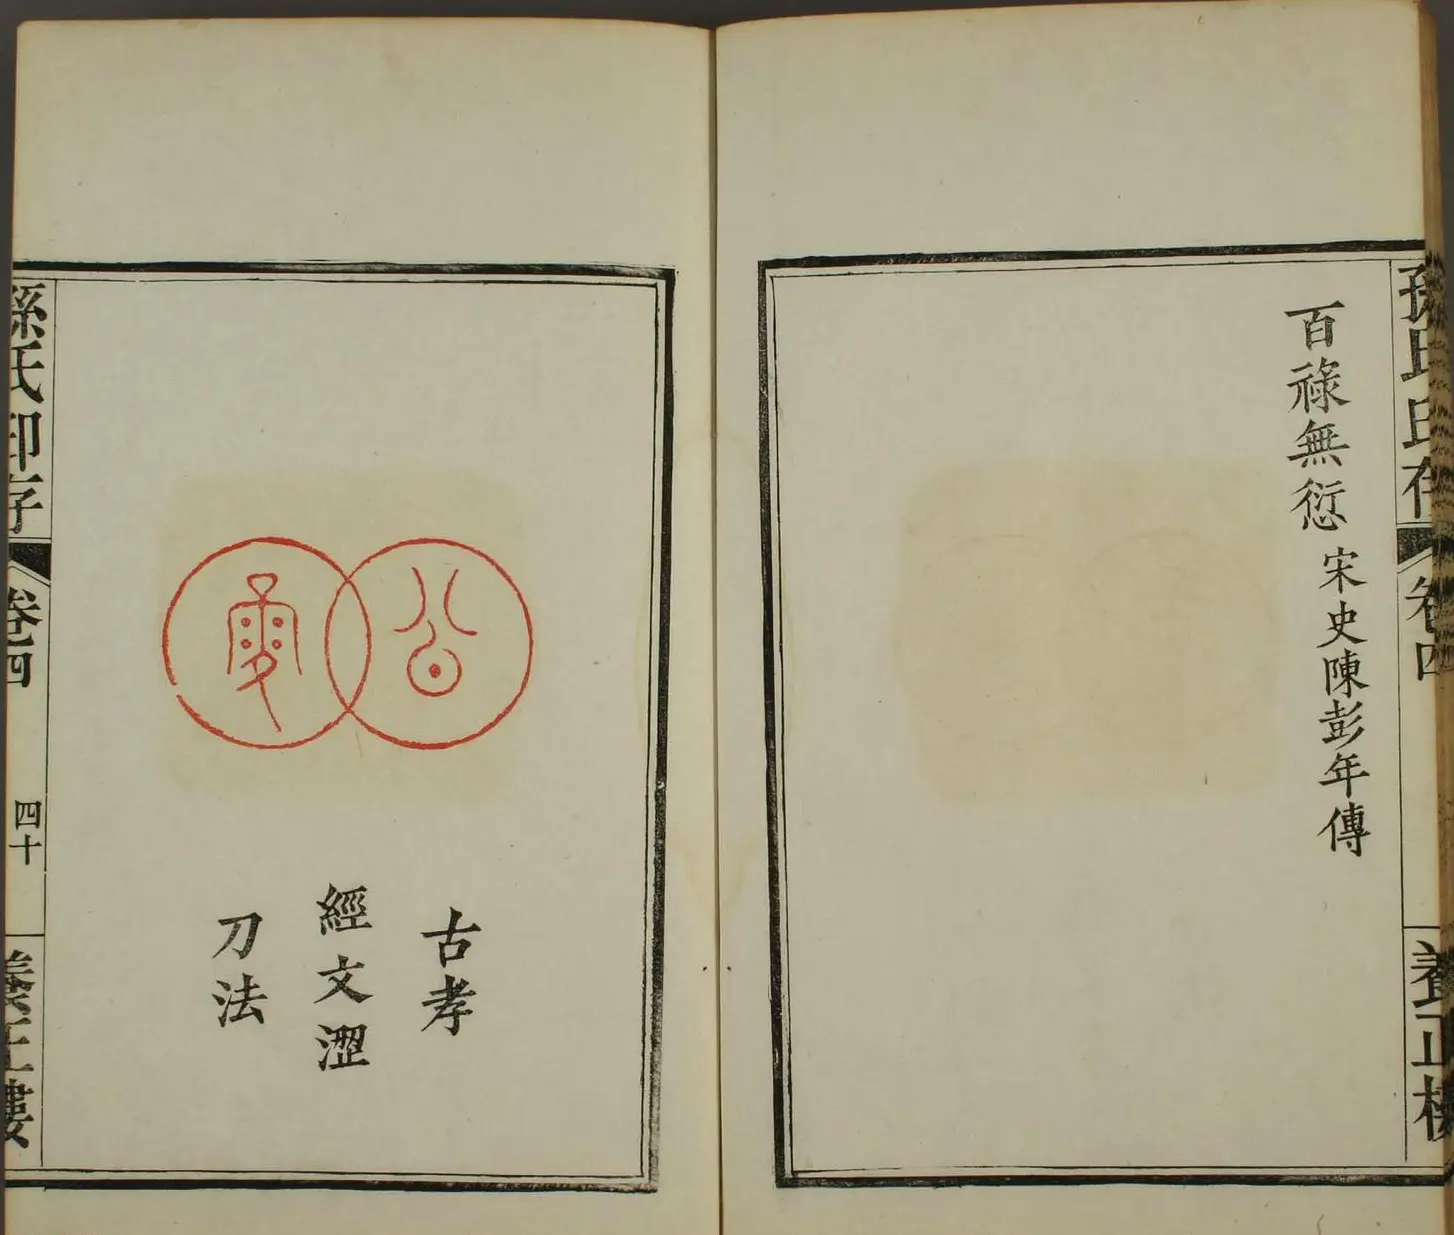 孫氏印存
卷四
養正樓
百祿無愆
宋史陳彭年傳
公
古孝
經文澀
刀法
孫氏印存
卷四
四十
養正樓